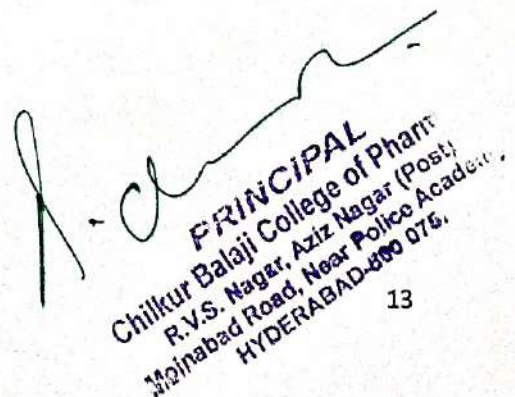 PRINCIPAL
Chilkur Balaji College of Pharm
R.V.S. Nagar, Aziz Nagar (Post)
Moinabad Road, Near Police Academ
HYDERABAD-500 075.
13